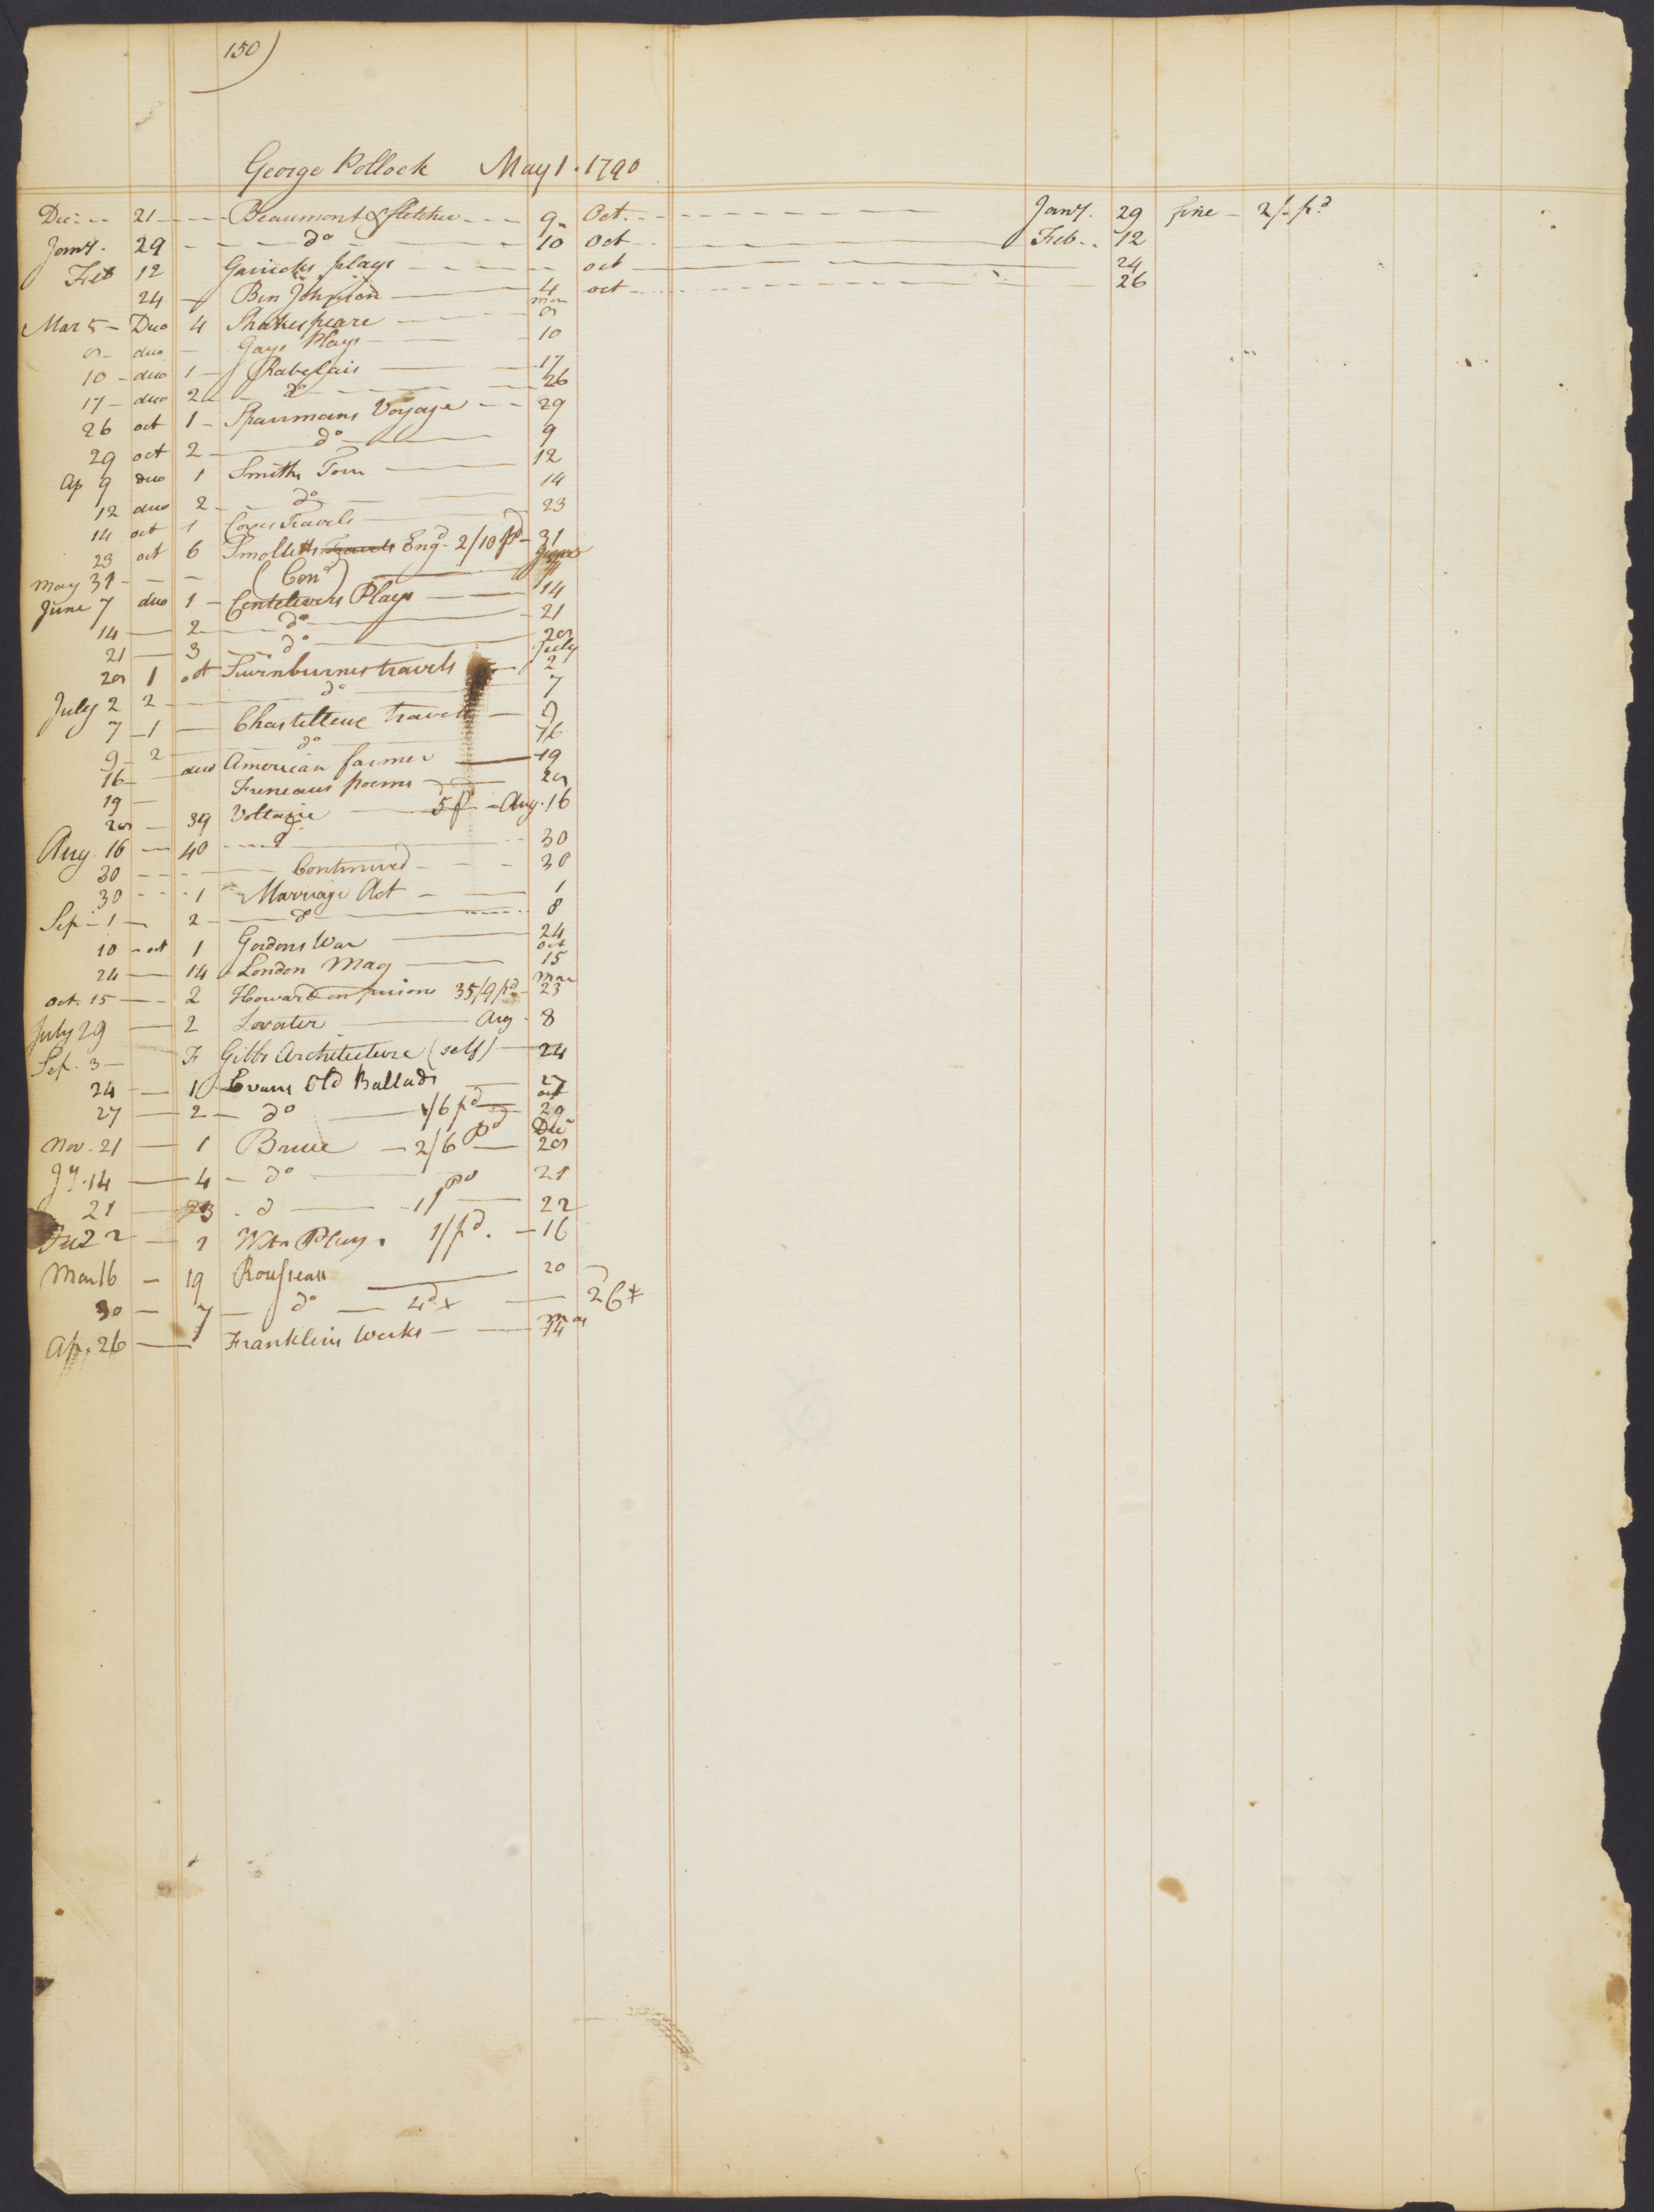 150)
George Pollock May 1. 1790
Dec: 21 Beaumont & fletcher 9 Oct. Jany. 29 fine 2/- pd
Jany. 29 do 10 Oct Feb. 12
Feb 12 Garricks plays oct 24
24 Ben Johnson 4 oct 26
Mar 5 Duo 4 Shakespeare mar 8
8 duo Gays Plays 10
10 duo 1 Rabelais 17
17 duo 2 do 26
26 oct 1 Sparmans Voyage 29
29 oct 2 do 9
Ap 9 duo 1 Smiths Tour 12
12 duo 2 do 14
14 oct 1 Coxes Travels 23
23 oct 6 Smolletts Travels Engd. 2/10 pd 31
may 31 (Cond) June 7
June 7 duo 1 Centelivers Plays 14
14 2 do 21
21 3 do 28
28 1 oct Swinburnes travels July 2
July 2 2 do 7
7 1 Chastelleux travels 9
9 2 do 16
16 duo American farmer 19
19 Freneaus poems 28
28 39 Voltaire 5d Aug. 16
Aug. 16 40 do 30
30 Continued 30
30 1 Marriage Act 1
Sep 1 2 do 8
10 oct 1 Gordons War 24
24 14 London Mag oct 15
Oct. 15 2 Howard on prisons 35/9 pd mar 23
July 29 2 Lavater Aug. 8
Sep. 3 F Gibbs Architecture (self) 24
24 1 Evans Old Ballads 27
27 2 do 1/6 pd oct 29
Nov. 21 1 Bruce 2/6 Pd Dec 28
Jy. 14 4 do 21
21 3 d 1/ Pd 22
Fe 22 1 Wtn Plays 1/pd. 16
Mar 16 19 Rousseau 20
30 7 do 4d x 26 *
Ap. 26 Franklins Works may 14